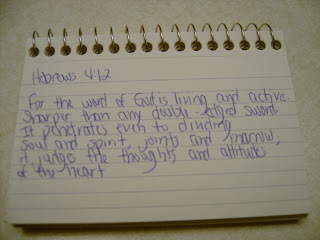 Hebrews 4:12
For the word of God is living and active.
Sharper than any double-edged sword
It penetrates even to dividing
soul and spirit joints and marrow,
it judges the thoughts and attitudes
of the heart